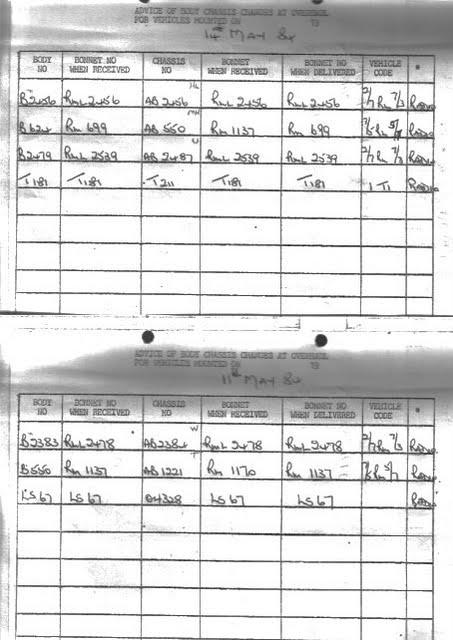 ADVICE OF BODY CHASSIS CHANGES AT OVERHAUL
FOR VEHICLES MOUNTED ON 19
14th MAY 84
BODY NO BONNET NO WHEN RECEIVED CHASSIS NO BONNET WHEN RECEIVED BONNET NO WHEN DELIVERED VEHICLE CODE *
B2456 RML 2456 AB 2456 RML 2456 RML 2456 2/7 RM 7/3 RADIO
B624 RM 699 AB 550 RM 1137 RM 699 RADIO
B2479 RML 2539 AB 2487 RML 2539 RML 2539 2/7 RM 7/3 RADIO
T1181 T1181 T211 T1181 T1181 1 T1 RADIO
ADVICE OF BODY CHASSIS CHANGES AT OVERHAUL
FOR VEHICLES MOUNTED ON 19
11th MAY 84
BODY NO BONNET NO WHEN RECEIVED CHASSIS NO BONNET WHEN RECEIVED BONNET NO WHEN DELIVERED VEHICLE CODE *
B2383 RML 2478 AB2384 RML 2478 RML 2478 2/7 RM 7/3 RADIO
B550 RM 1137 AB 1221 RM 1170 RM 1137 RADIO
LS 67 LS 67 04328 LS 67 LS 67 RADIO